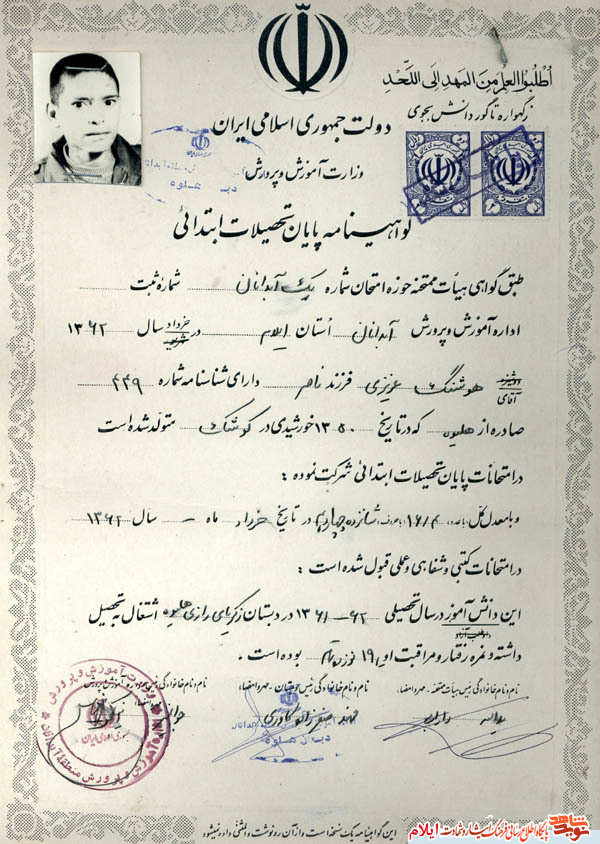 اُطْلُبُوا العِلْمَ مِنَ الْمَهدِ اِلَی اللَّحَدِ
زگهواره تا گور دانش بجوی
دولت جمهوری اسلامی ایران
وزارت آموزش و پرورش
گواهینامه پایان تحصیلات ابتدائی
طبق گواهی هیأت ممتحنه حوزه امتحان شماره یک آبدانان شماره ثبت
اداره آموزش و پرورش آبدانان اُستان ایلام در خرداد شهریور سال ۱۳۶۲
دوشیزه آقای هوشنگ عزیزی فرزند ناصر دارای شناسنامه شماره ۴۴۹
صادره از هلیوه که در تاریخ ۱۳۵۰ خورشیدی در کوشک متولد شده است
در امتحانات پایان تحصیلات ابتدائی شرکت نموده :
و بامعدل کل (باعدد) ۱۶/۴ (باحروف) شانزده چهاردهم در تاریخ خرداد ماه – سال ۱۳۶۲
در امتحانات کتبی و شفاهی و عملی قبول شده است :
این دانش آموز داوطلب آزاد در سال تحصیلی ۶۲–۱۳۶۱ در دبستان زکریای رازی هلیوه اشتغال به تحصیل
داشته و نمره رفتار و مراقبت او ۱۹ نوزده تمام بوده است .
نام و نام خانوادگی رئیس هیأت ممتحنه - مهر و امضاء:
نام و نام خانوادگی رئیس دبستان - مهر و امضاء:
نام و نام خانوادگی رئیس اداره آموزش و پرورش
وزارت آموزش و پرورش
جمهوری اسلامی ایران
آموزش و پرورش منطقه آبدانان
این گواهینامه یک نسخه است و از آن رونوشت و المثنی داده نمیشود
نوید شاهد
پایگاه اطلاع رسانی فرهنگ ایثار و شهادت ایلام